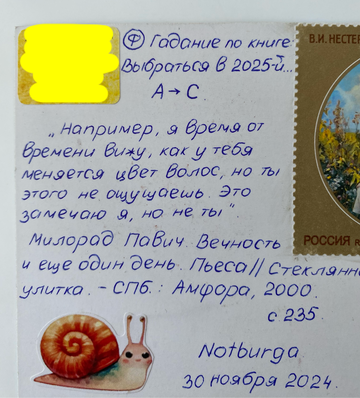 Ф Гадание по книге:
Выбраться в 2025-й...
А → С
„Например, я время от
времени вижу, как у тебя
меняется цвет волос, но ты
этого не ощущаешь. Это
замечаю я, но не ты“
Милорад Павич. Вечность
и еще один день. Пьеса // Стеклянн
улитка. – СПб.: Амфора, 2000.
с 235.
Notburga
30 ноября 2024.
В.И. НЕСТЕР
РОССИЯ